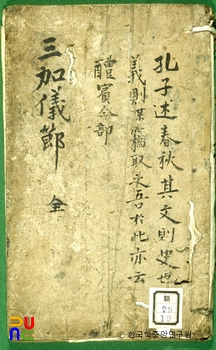 孔子述春秋其文則史其
義則某竊取之吾於此亦云
醴賓
三加儀節 全
ⓒ 한국학중앙연구원